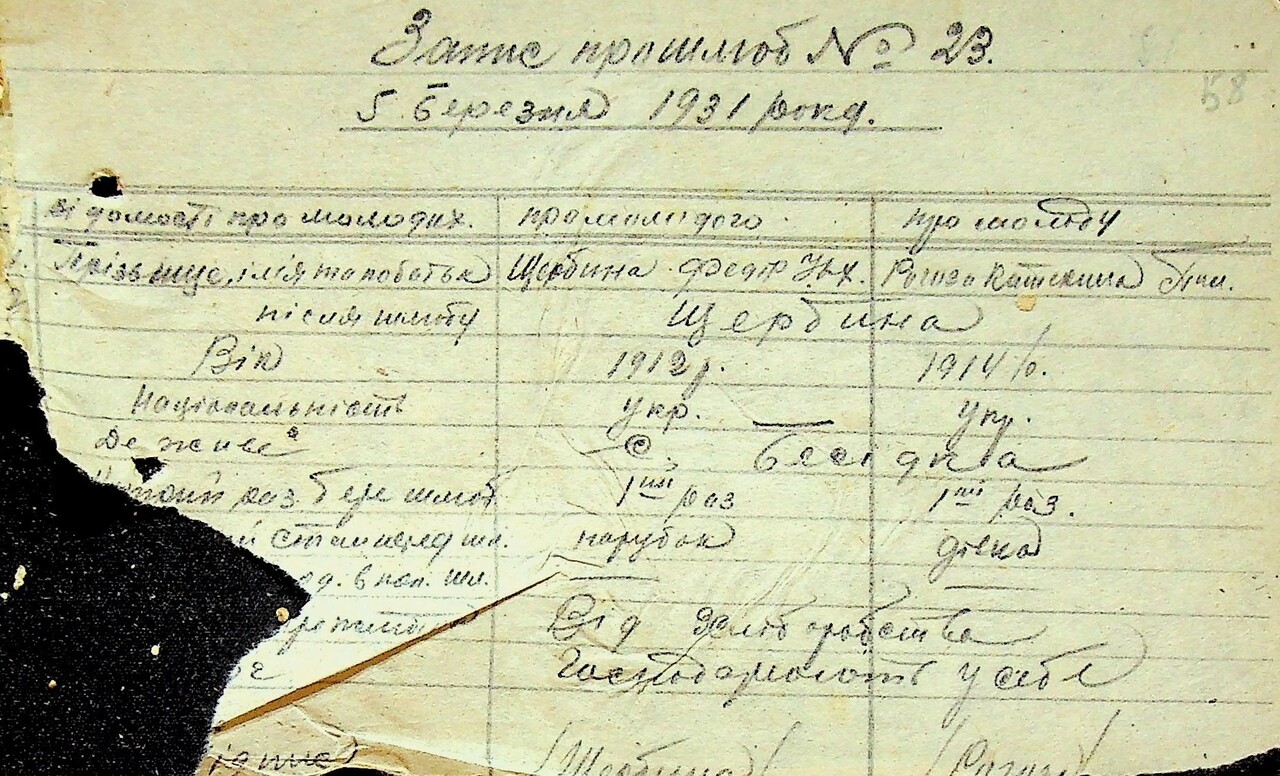 Запис про шлюб № 23.
58
5 березня 1931 року.
відомості про молодих. про молодого про молоду
Прізвище, імʼя та по батьк Щербина Федір Рогоза Катерина
після шлюбу Щербина
Вік 1912 р. 1914 р.
Національність укр. укр.
Де живе с. Бесідка
раз бере шлюб 1ий раз 1ий раз.
й стан перед шл. парубок дівка
од. в поп. шл. — —
Від хліборобства
Господарюють у себе
ідпис /Щербина/ /Рогоза/